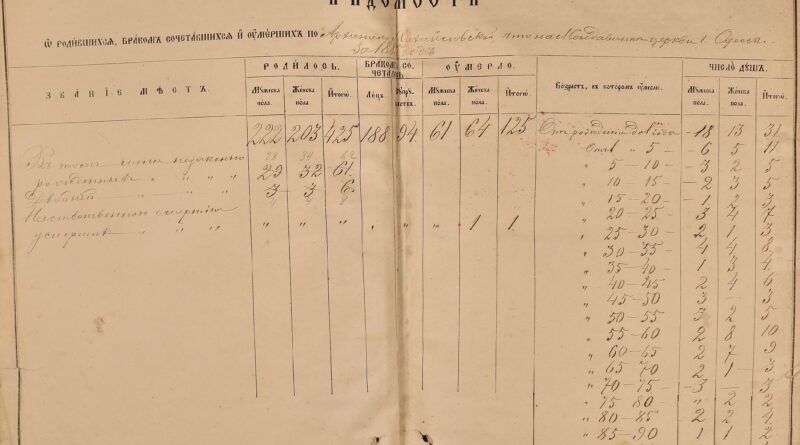 ВѢДОМОСТИ
Ѿ РОДИВШИХСЯ, БРАКОМЪ СОЧЕТАВШИХСЯ И ОУМЕРШИХЪ ПО Архангело-Михайловской, что на Молдаванкѣ церкви г. Одессы.
За 18 годъ
ЗВАНІЕ МѢСТЪ. РОДИЛОСЬ. БРАКОМЪ СОЧЕТАЛОСЬ. ОУМЕРЛО. Возрастъ, въ которомъ оумерли. ЧИСЛО ДѸШЪ.
Мѹжеска пола. Женска пола. Итого. Лицъ. Мѹжеска пола. Женска пола. Итого. Мѹжеска пола. Женска пола. Итого.
222 203 425 188 94 61 64 125 Отъ рожденія до 18 13 31
" 5 — 6 5 11
Въ томъ числѣ незаконно 28 34 62
рожденныхъ " " " 29 32 61 " 5 — 10 — 3 2 5
Двойни — " " " 3 3 6 " 10 — 15 — 2 3 5
" 15 — 20 — 1 2 3
Неестественною смертію " 20 — 25 — 3 4 7
умершихъ " " " " " " " " " 1 1 " 25 — 30 — 2 1 3
" 30 — 35 — 4 4
" 35 — 40 — 1 3 4
" 40 — 45 2 4 6
" 45 — 50 3 — 3
" 50 — 55 3 2 5
" 55 — 60 2 8 10
" 60 — 65 2 7 9
" 65 70 2 1 3
" 70 — 75 — 3 — 3
" 75 80 — " 2 2
" 80 — 85 — 2 2 4
" 85 — 90 1 1 2